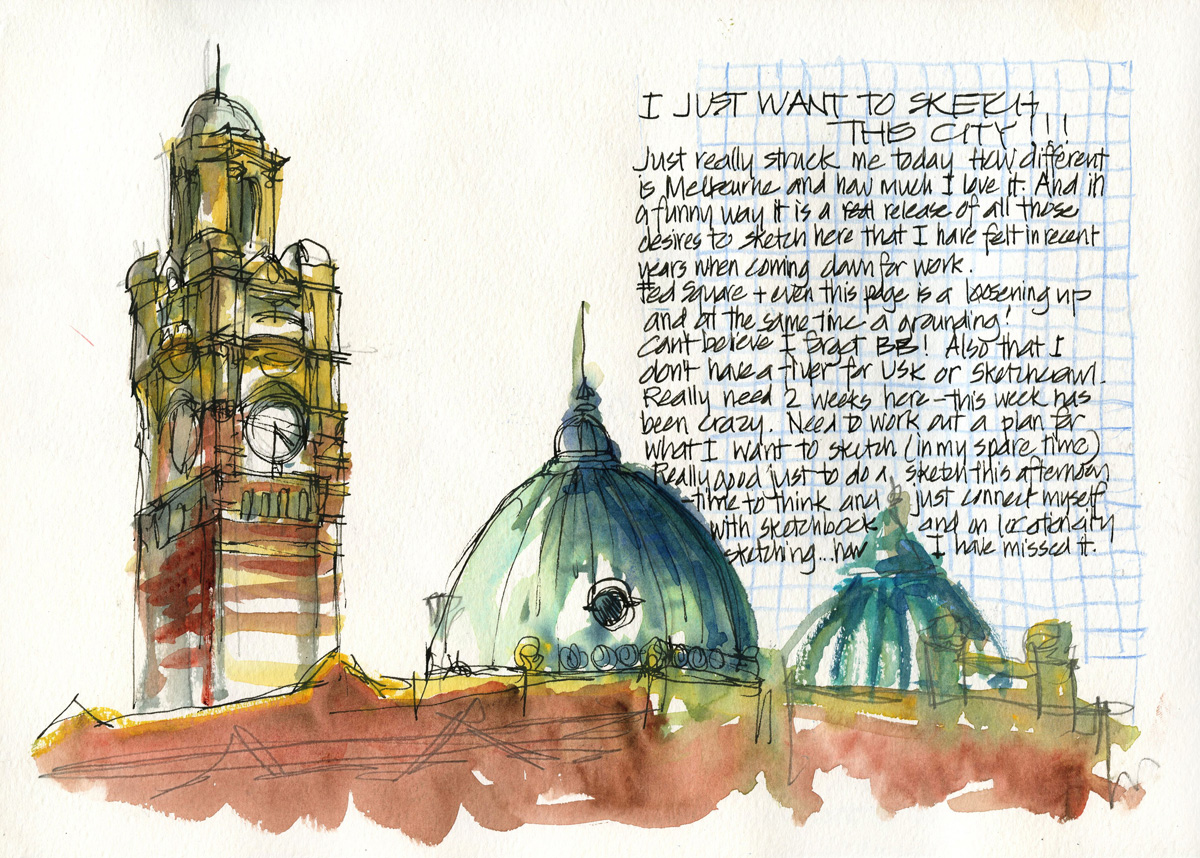 I JUST WANT TO SKETCH
THIS CITY!!!
Just really struck me today How different
is Melbourne and how much I love it. And in
a funny way it is a real release of all those
desires to sketch here that I have felt in recent
years when coming down for work.
Fed Square + even this page is a loosening up
and at the same time a grounding!
Cant believe I forgot BB! Also that I
dont have a flyer for USK or Sketchcrawl.
Really need 2 weeks here - this week has
been crazy. Need to work out a plan for
what I want to sketch (in my spare time)
Really good just to do a sketch this afternoon
time to think and just connect myself
with sketchbook and on location city
sketching... how I have missed it.